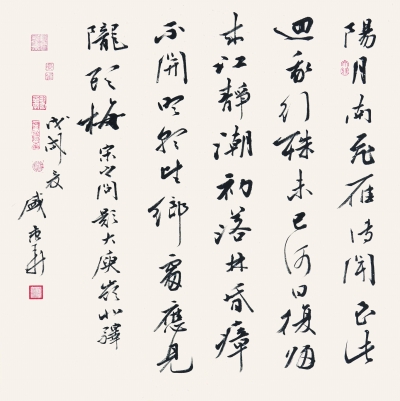 陽月南飛雁傳聞至此
迴我行殊未已何日復歸
来江靜潮初落林昏瘴
不開明朝望鄉處應見
隴頭梅宋之問題大庾嶺北驛
戊戌夏盛